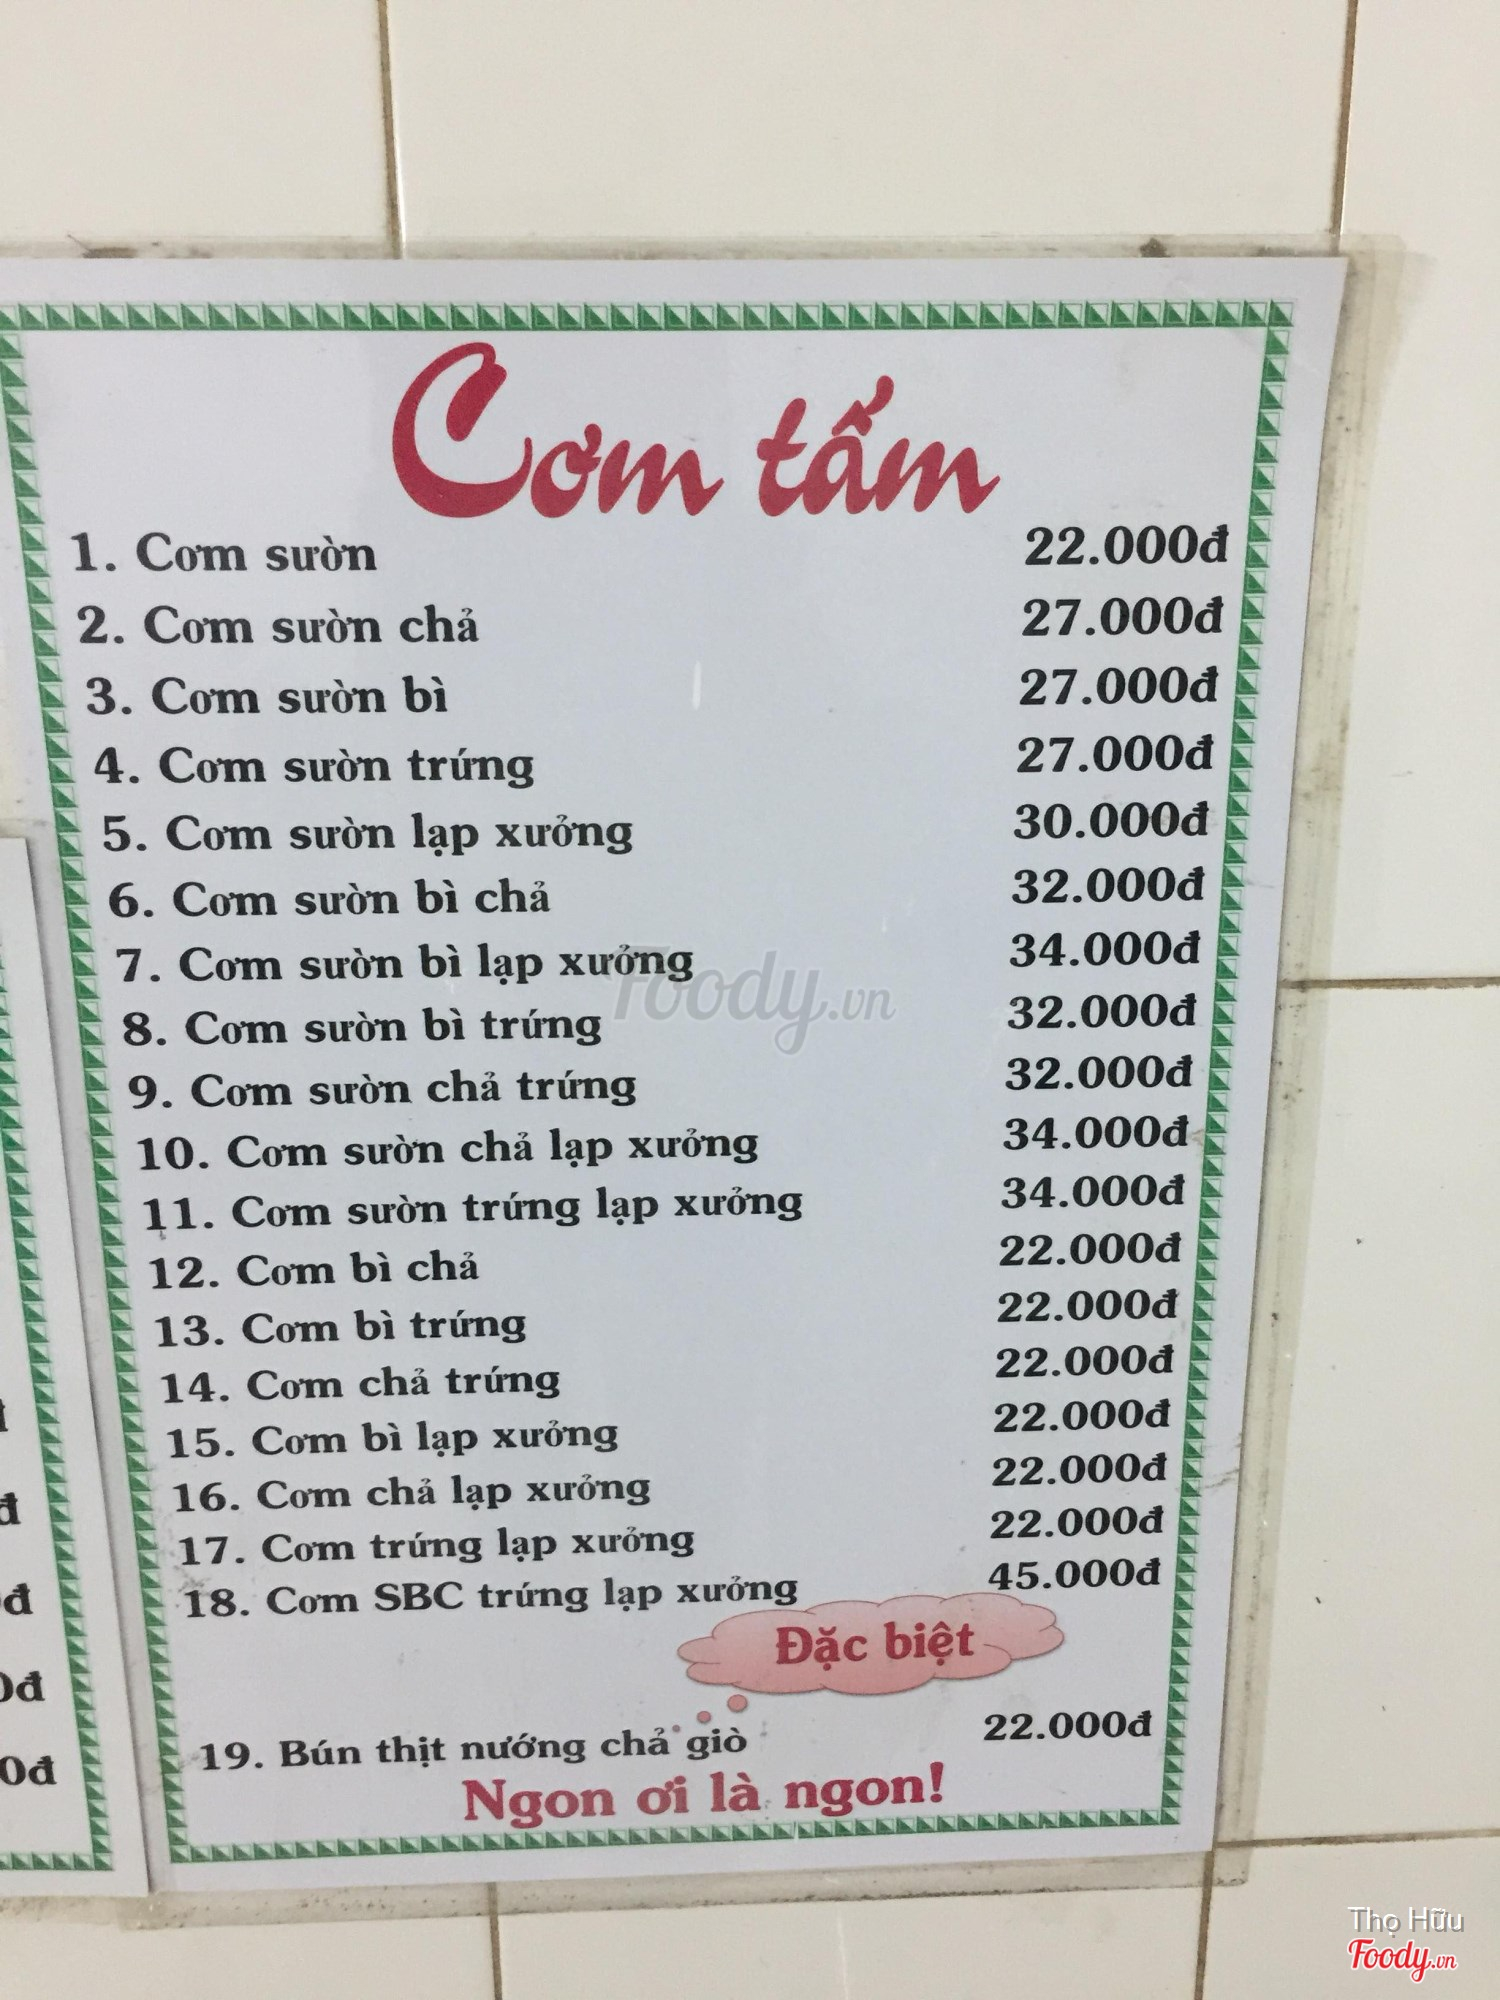 Cơm tấm
1. Cơm sườn 22.000đ
2. Cơm sườn chả 27.000đ
3. Cơm sườn bì 27.000đ
4. Cơm sườn trứng 27.000đ
5. Cơm sườn lạp xưởng 30.000đ
6. Cơm sườn bì chả 32.000đ
7. Cơm sườn bì lạp xưởng 34.000đ
8. Cơm sườn bì trứng 32.000đ
9. Cơm sườn chả trứng 32.000đ
10. Cơm sườn chả lạp xưởng 34.000đ
11. Cơm sườn trứng lạp xưởng 34.000đ
12. Cơm bì chả 22.000đ
13. Cơm bì trứng 22.000đ
14. Cơm chả trứng 22.000đ
15. Cơm bì lạp xưởng 22.000đ
16. Cơm chả lạp xưởng 22.000đ
17. Cơm trứng lạp xưởng 22.000đ
18. Cơm SBC trứng lạp xưởng 45.000đ
Đặc biệt
19. Bún thịt nướng chả giò 22.000đ
Ngon ơi là ngon!
Foody.vn
Thọ Hữu
Foody.vn